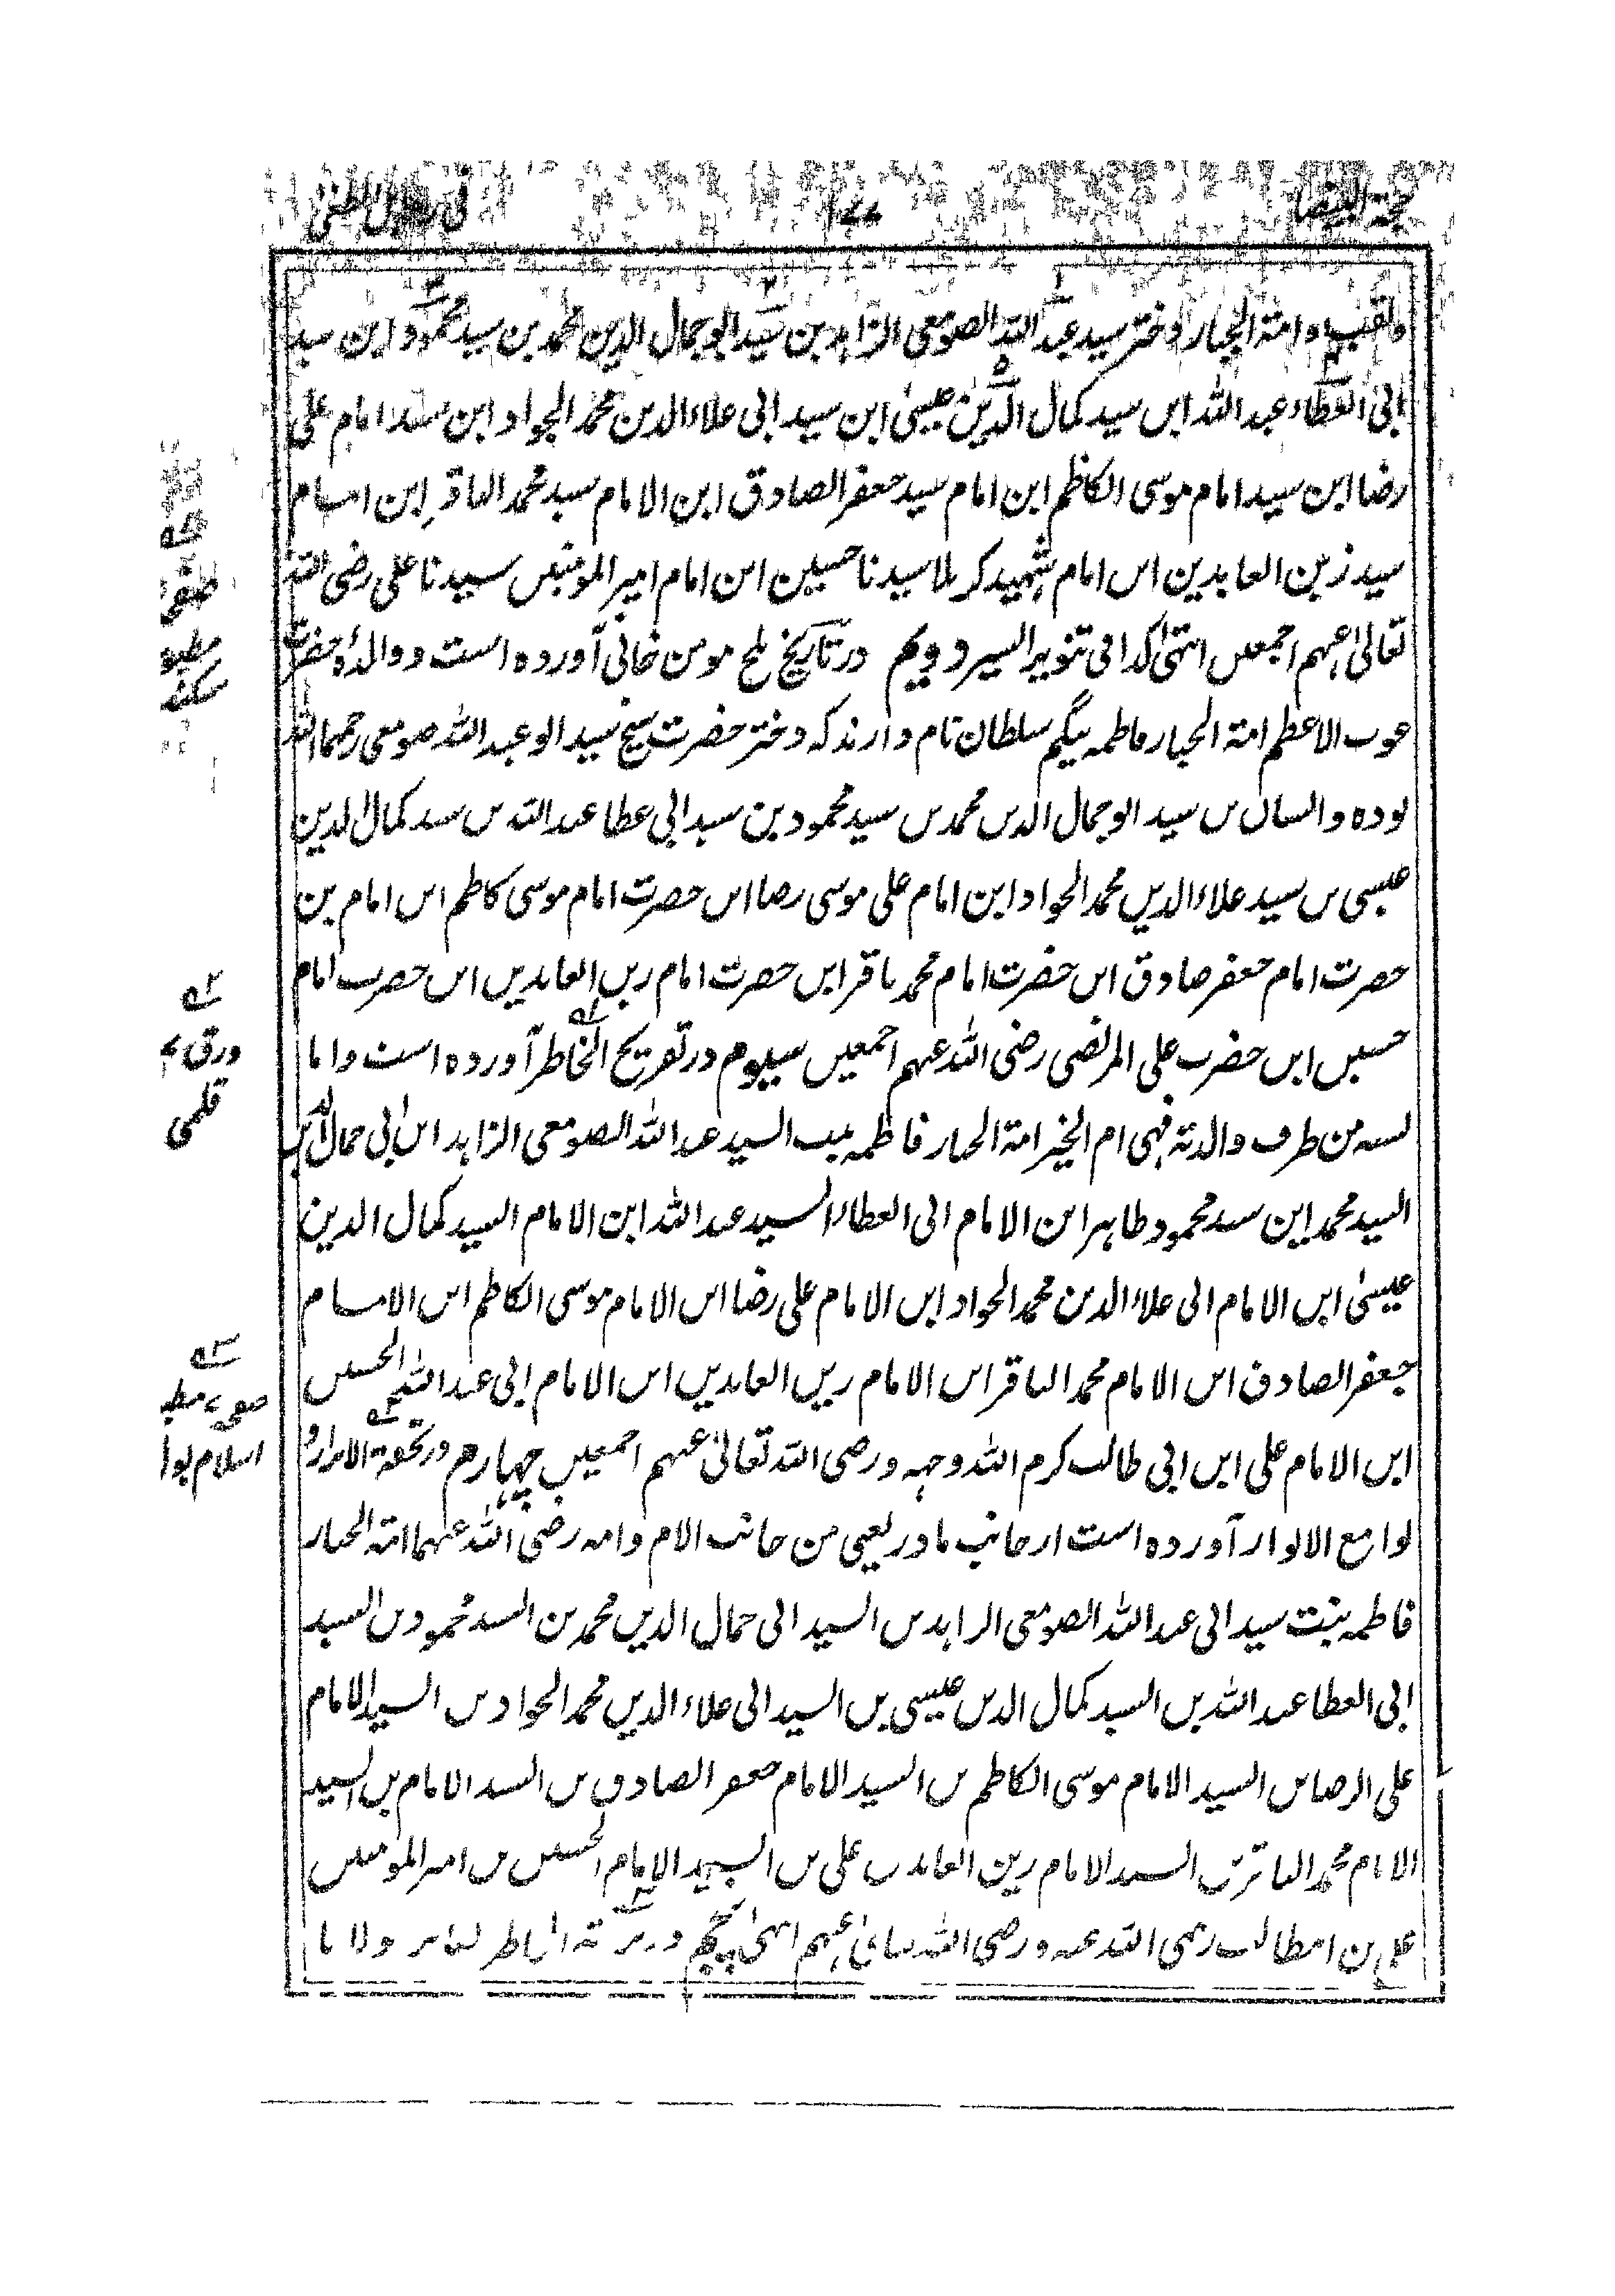 حجة البیضا
ولقب و امة الجبار دختر سید عبد الله الصومعی الزاهد بن سید ابو جمال الدین محمد بن سید محمود ابن سید
ابی العطاء عبد الله ابن سید کمال الدین عیسیٰ ابن سید ابی علاء الدین محمد الجواد ابن سید امام علی
رضا ابن سید امام موسی الکاظم ابن امام سید جعفر الصادق ابن الامام سید محمد الباقر ابن امام
سید زین العابدین ابن امام شهید کربلا سیدنا حسین ابن امام امیر المومنین سیدنا علی رضی الله
تعالیٰ عنهم اجمعین انتهیٰ کذا فی تنویر السیر دویم در تاریخ بلخ مومن خانی آورده است و والدۀ حضرت
غوث الاعظم امة الجبار فاطمه بیگم سلطان نام دارند که دختر حضرت شیخ سید ابو عبد الله صومعی رحمهما الله
بوده و ایشان بن سید ابو جمال الدین محمد بن سید محمود بن سید ابی عطا عبد الله بن سید کمال الدین
عیسی بن سید علاء الدین محمد الجواد ابن امام علی موسی رضا ابن حضرت امام موسی کاظم ابن امام بن
حضرت امام جعفر صادق ابن حضرت امام محمد باقر ابن حضرت امام زین العابدین ابن حضرت امام
حسین ابن حضرت علی المرتضی رضی الله عنهم اجمعین سیوم در تفریح الخاطر آورده است و اما
نسبه من طرف والدته فهی ام الخیر امة الجبار فاطمه بنت السید عبد الله الصومعی الزاهد ابن ابی جمال الدین
السید محمد ابن سید محمود طاهر ابن الامام ابی العطاء السید عبد الله ابن الامام السید کمال الدین
عیسیٰ ابن الامام ابی علاء الدین محمد الجواد ابن الامام علی رضا ابن الامام موسی الکاظم ابن الامام
جعفر الصادق ابن الامام محمد الباقر ابن الامام زین العابدین ابن الامام ابی عبد الله الحسین
ابن الامام علی ابن ابی طالب کرم الله وجهه و رضی الله تعالیٰ عنهم اجمعین چهارم در تحفة الابرار و
لوامع الانوار آورده است از جانب مادر یعنی من جانب الام و امه رضی الله عنهما امة الجبار
فاطمه بنت سید ابی عبد الله الصومعی الزاهد بن السید ابی جمال الدین محمد بن السید محمود بن السید
ابی العطا عبد الله بن السید کمال الدین عیسی بن السید ابی علاء الدین محمد الجواد بن السید الامام
علی الرضا بن السید الامام موسی الکاظم بن السید الامام جعفر الصادق بن السید الامام بن السید
الامام محمد الباقر بن السید الامام زین العابدین علی بن السید الامام الحسین بن امیر المومنین
علی بن ابیطالب رضی الله عنه و رضی الله تعالیٰ عنهم انتهیٰ پنجم در الخاطر
مطبو
ورق
قلمی
اسلام